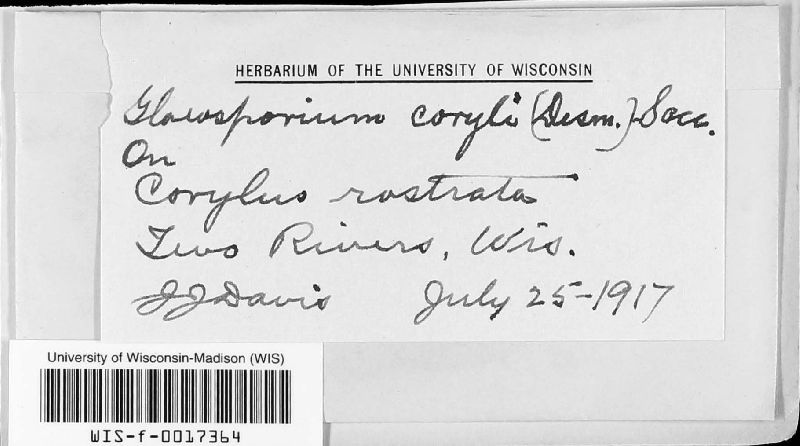 HERBARIUM OF THE UNIVERSITY OF WISCONSIN
Gloeosporium coryli (Desm.) Sacc.
On
Corylus rostrata
Two Rivers, Wis.
JJ Davis July 25-1917
University of Wisconsin-Madison (WIS)
WIS-f-0017364